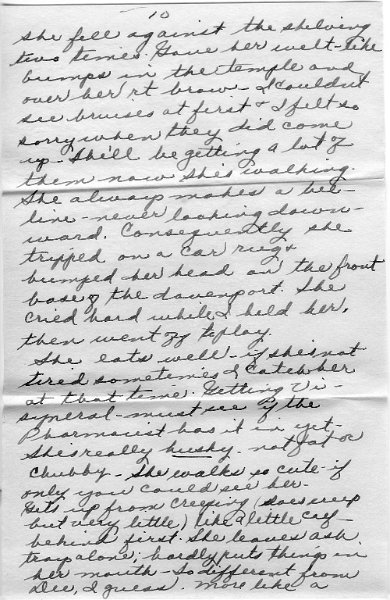 10
she fell against the shelving
two times. Gave her welt-like
bumps in the temple and
over her rt brow - I couldn't
see bruises at first & I felt so
sorry when they did come
up - She'll be getting a lot of
them now she's walking.
She always makes a bee-
line - never looking down-
ward. Consequently she
tripped on a car rug &
bumped her head on the front
base of the davenport. She
cried hard while I held her,
then went off to play.
She eats well - if she's not
tired sometimes I catch her
at that time. Getting Vi-
syneral - must see if the
Pharmacist has it in yet.
She's really husky - not fat or
chubby - She walks so cute - if
only you could see her -
Gets up from creeping (does creep
but very little) like a little calf -
behind first. She leaves ash
trays alone, hardly puts things in
her mouth - so different from
Dee, I guess. More like a